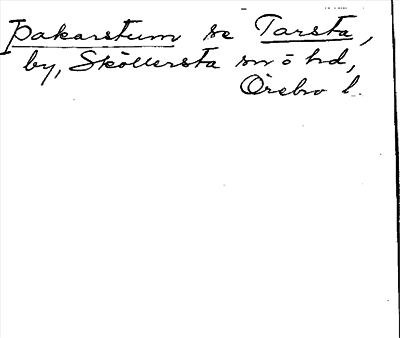 þakarstum se Tarsta,
by, Sköllersta sn ö hd,
Örebro l.